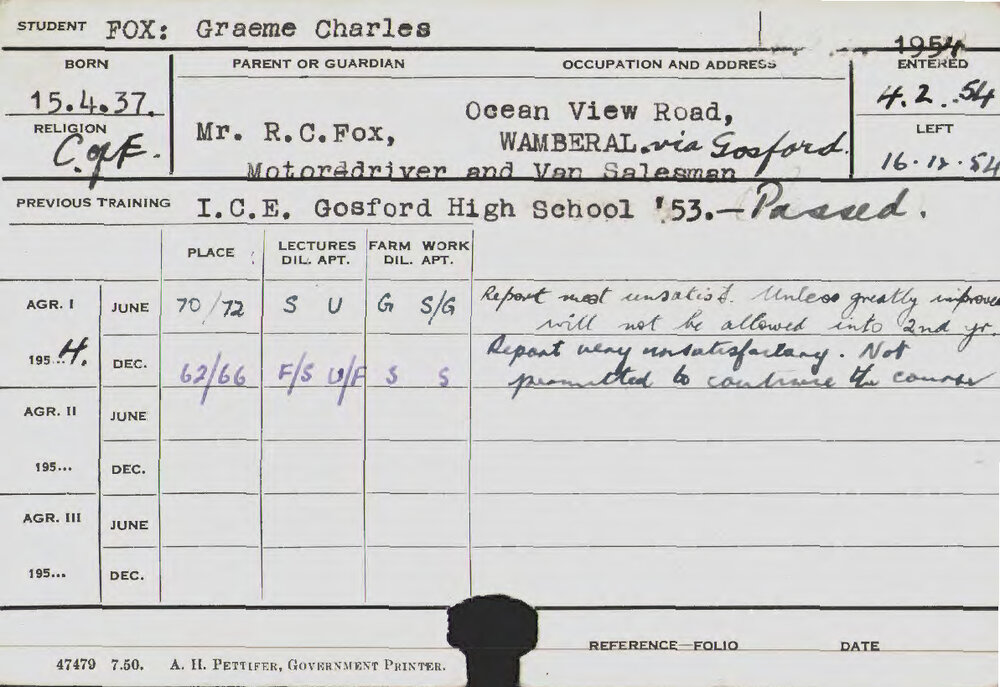 STUDENT FOX: Graeme Charles
1954
BORN PARENT OR GUARDIAN OCCUPATION AND ADDRESS ENTERED
15.4.37. 4.2.54
Ocean View Road,
RELIGION Mr. R.C.Fox, WAMBERAL. via Gosford. LEFT
C. of E. 16.12.54
Motor driver and Van Salesman
PREVIOUS TRAINING I.C.E. Gosford High School '53.—Passed.
PLACE LECTURES FARM WORK
DIL. APT. DIL. APT.
AGR. I JUNE 70/72 S U G S/G Report most unsatist. Unless greatly improves
will not be allowed into 2nd yr.
1954. DEC. 62/66 F/S U/F S S Report very unsatisfactory. Not
permitted to continue the course
AGR. II JUNE
195... DEC.
AGR. III JUNE
195... DEC.
REFERENCE—FOLIO DATE
47479 7.50. A. H. PETTIFER, GOVERNMENT PRINTER.